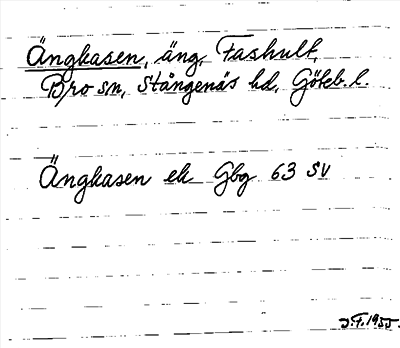 Ängkasen, äng, Fashult,
Bro sn, Stångenäs hd, Göteb. l.
Ängkasen ek Gbg 63 SV
J.F. 1955.